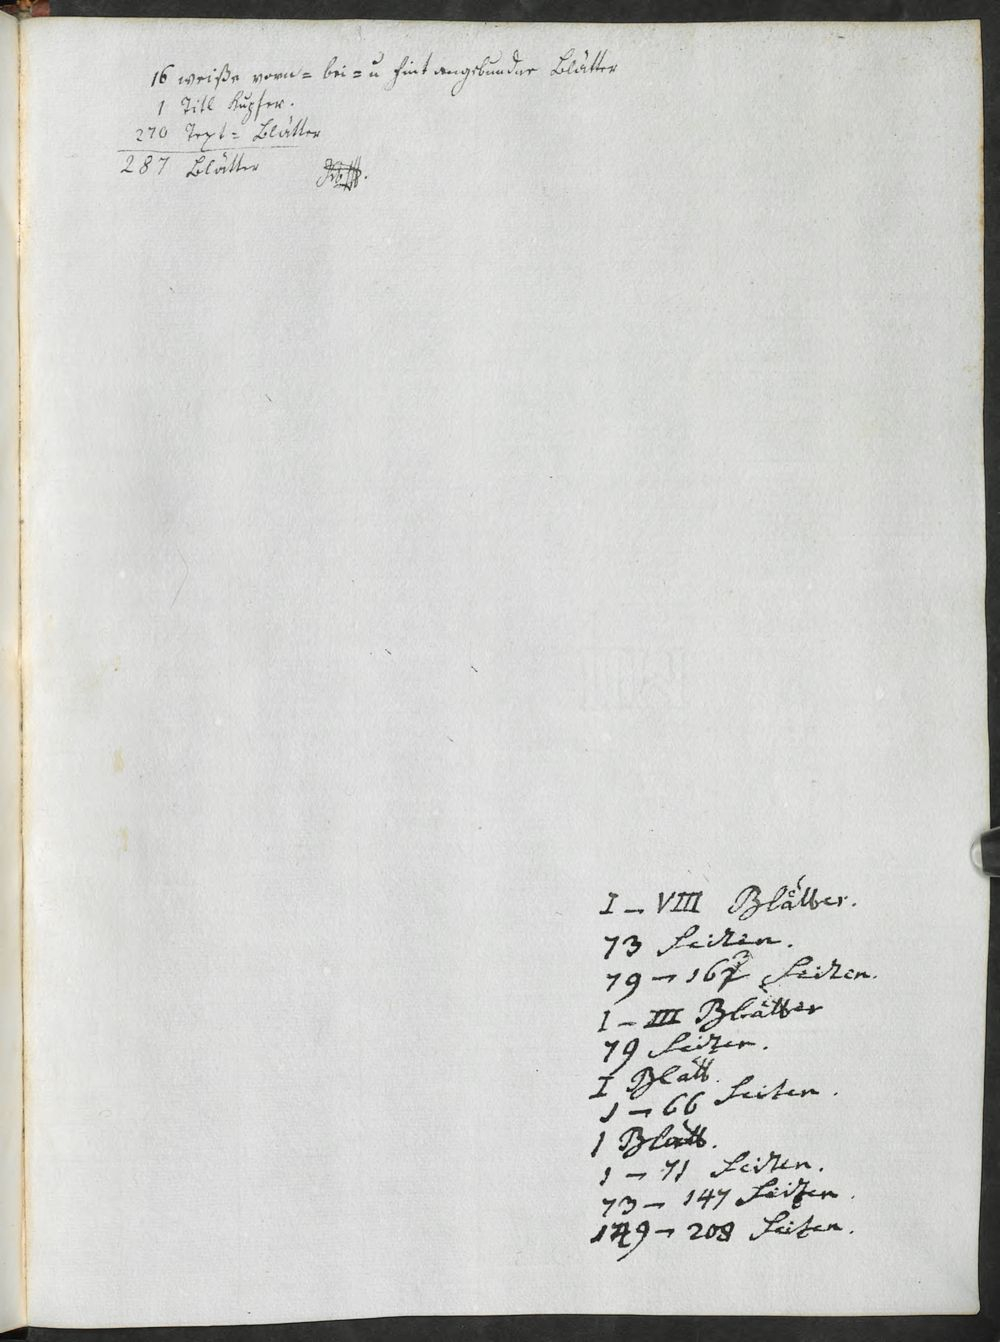 16 weiße vorn= bei= u hint angebundne Blätter
1 Titl Kupfer.
270 Text= Blätter
287 Blätter
I – VIII Blätter.
73 Seiten.
79 – 167 Seiten.
I – III Blätter
79 Seiten.
I Blatt.
1 – 66 Seiten.
1 Blatt.
1 – 71 Seiten.
73 – 147 Seiten.
149 – 208 Seiten.